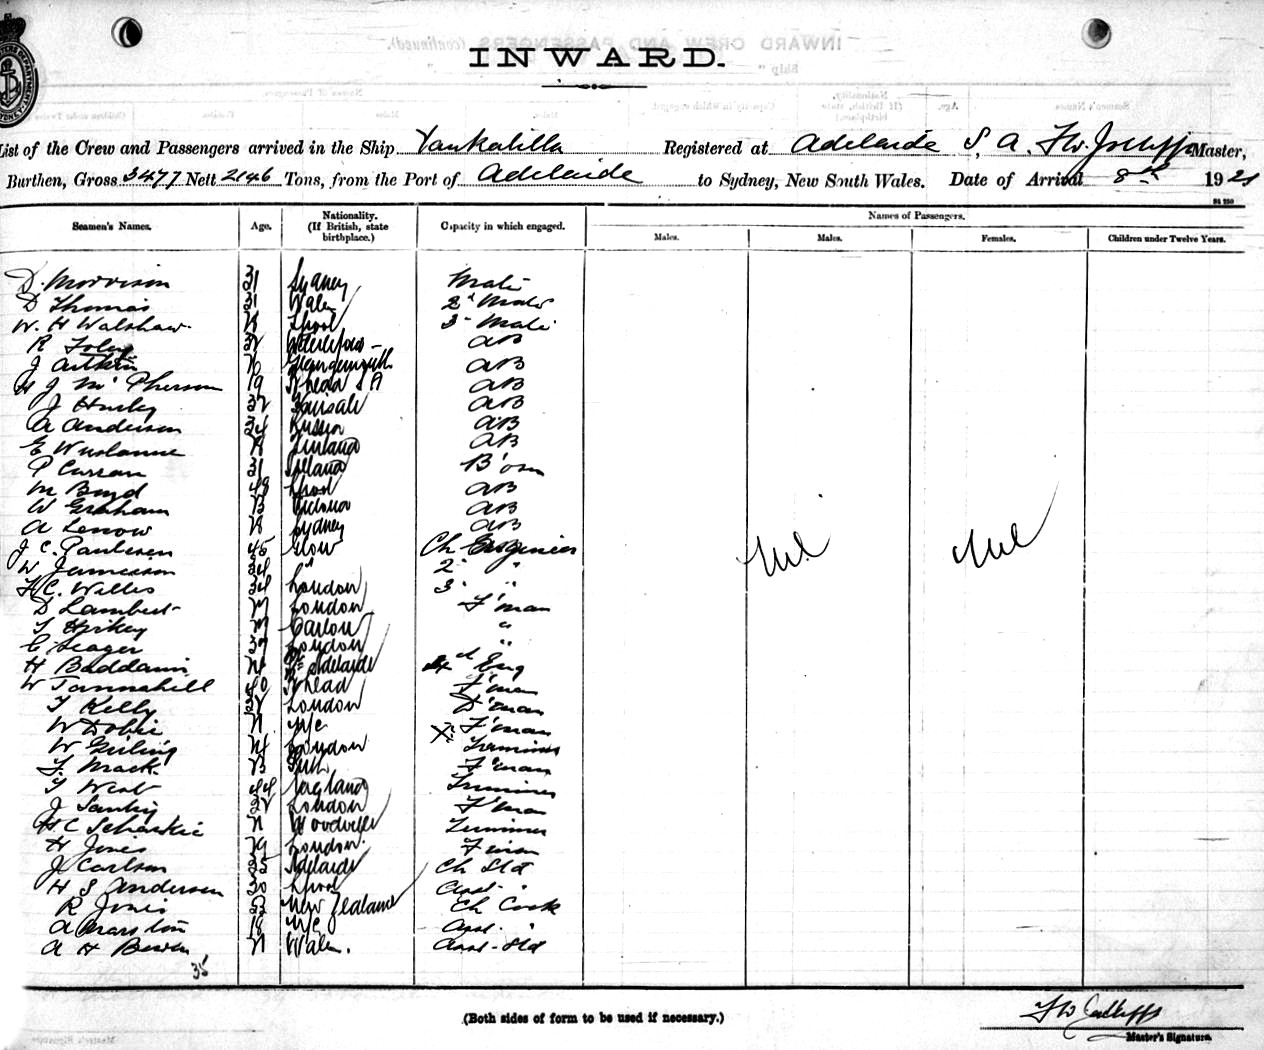 INWARD.
List of the Crew and Passengers arrived in the Ship Yankalilla Registered at Adelaide S. A. Master,
Burthen, Gross 3477 Nett 2146 Tons, from the Port of Adelaide to Sydney, New South Wales. Date of Arrival 8th 1921
Seamen's Names. Age. Nationality. (If British, state birthplace.) Capacity in which engaged. Names of Passengers.
Males. Males. Females. Children under Twelve Years.
D. Morrison 31 Sydney Mate
D Thomas 31 Wales 2d Mate
W. H Walshaw L'pool 3 Mate
R Foley AB
J Aitken AB
H J McPherson 19 AB
J Hurley 32 AB
A Anderson 34 Russia AB
E Finland AB
P Curran 31 Ireland B'osn
M Boyd 49 L'pool AB
W Graham Victoria AB
A Lenow Sydney AB
J. C. Paulesen 45 Glow Ch Engineer
W Jamieson 34 " 2 "
H C. Willis 34 London 3 "
D Lambert London F'man
T Hickey Carlow "
C Seager 37 London "
H Baddams Pt Adelaide 4th Eng
W Tannahill 40 F'man
T Kelly London D'man
W Dobie N/c F'man
W London Trimmer
F. Mack Perth F'man
T West 44 England Trimmer
J London F'man
H C Trimmer
H Jones London F'man
J Carlson 35 Adelaide Ch Std
H S Andersen 30 L'pool Asst "
R Jones New Zealand Ch Cook
A Marston 18 N/c Asst "
A H Wales. Asst Std
35
Nil Nil
(Both sides of form to be used if necessary.)
Master's Signature.